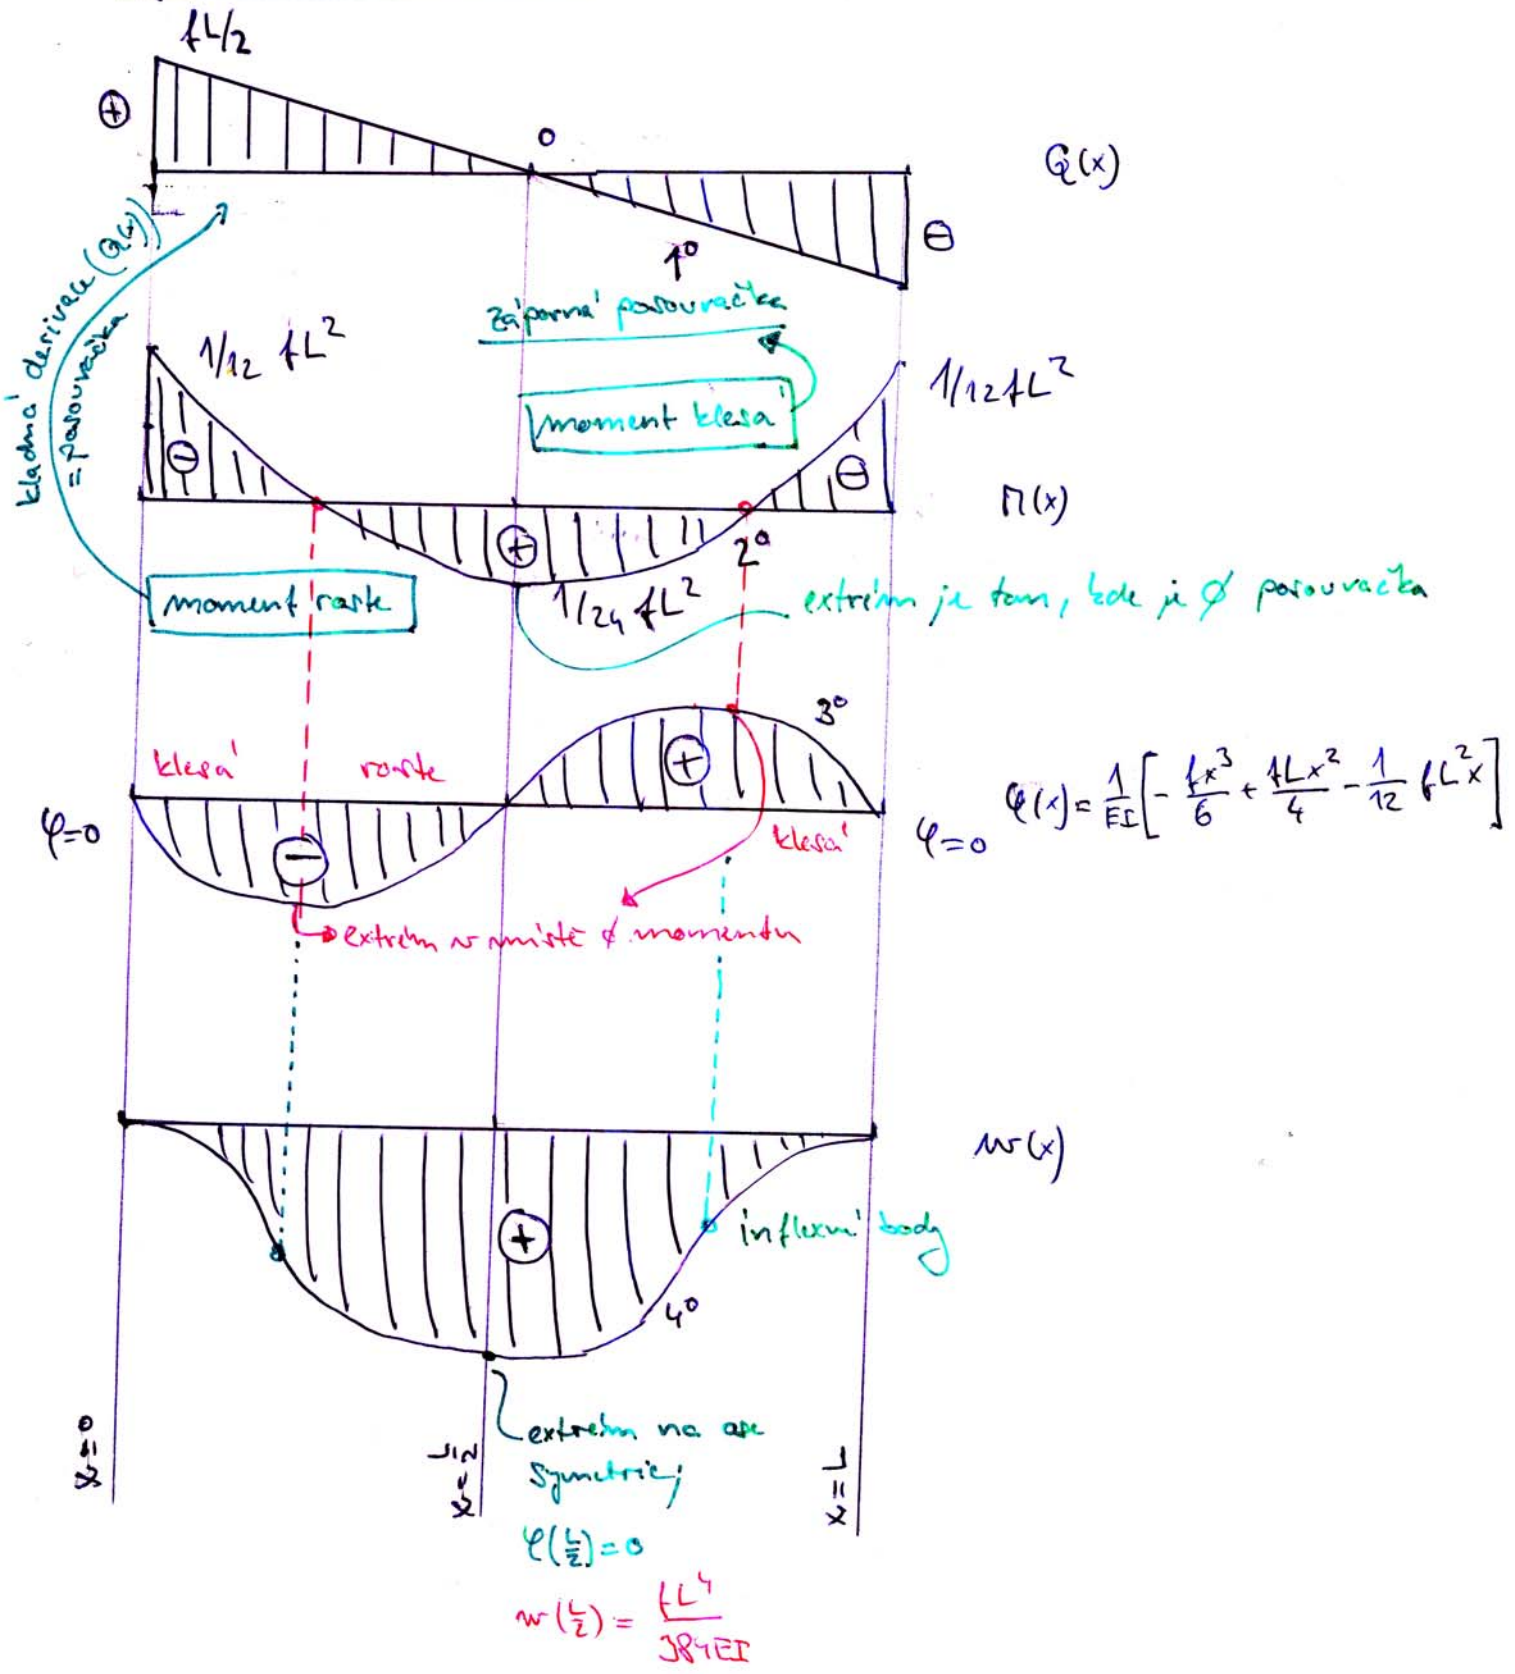 fL/2
⊕
0
Q(x)
⊖
1°
kladná derivace (Q(x))
= posouvačka
záporná posouvačka
1/12 fL²
moment klesá
1/12 fL²
⊖
⊖
M(x)
⊕
2°
moment roste
1/24 fL²
extrém je tam, kde je ∅ posouvačka
3°
klesá
roste
⊕
φ(x) = 1/EI [- fx³/6 + fLx²/4 - 1/12 fL²x]
φ=0
⊖
klesá
φ=0
extrém v místě ∅ momentu
w(x)
⊕
inflexní body
4°
x=0
x=L/2
x=L
extrém na ose
symetrie;
φ(L/2) = 0
w(L/2) = fL⁴/384EI